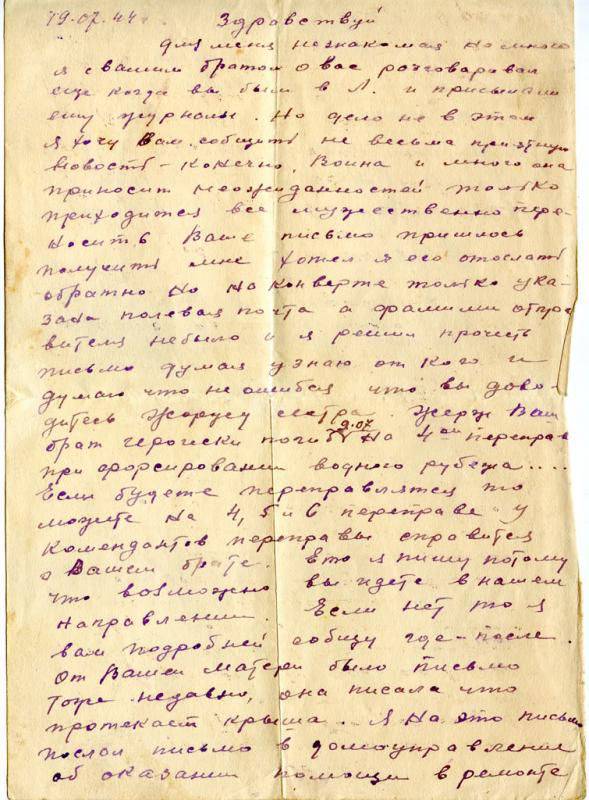 19.07.44 г Здравствуй
для меня незнакомая но много
я с вашим братом о Вас розговаривал
еще когда вы были в Л. и присылали
ему журналы. Но дело не в этом
я хочу Вам сообщить не весьма приятную
новость - конечно, Воина и много она
приносит неожиданностей только
приходится все мужественно пере-
носить Ваше письмо пришлось
получить мне хотел я его отослать
обратно но на конверте только ука-
зана полевая почта а фамили отпра
вителя небыло и я решил прочесть
письмо думая узнаю от кого и
думаю что не ошибся что вы дово-
дитесь Жоржу сестра. Жорж Ваш
брат геройски погиб 9.07 на 4ой переправ
при форсировании водного рубежа....
Если будете переправлятся то
можете на 4, 5 и 6 переправе у
комендантов переправы справится
о Вашем брате. Ето я пишу потому
что возможно вы идете в нашем
направлении. Если нет то я
вам подробней сообщу где-после.
От Вашей матери было письмо
тоже недавно, она писала что
протекает крыша. Я на это письмо
послал письмо в домоуправление
об оказании помощи в ремонте